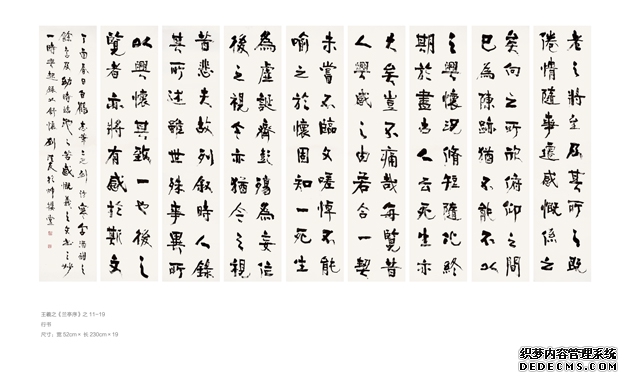 老之將至及其所之既
倦情隨事遷感慨係之
矣向之所欣俯仰之間
已為陳跡猶不能不以
之興懷況脩短隨化終
期於盡古人云死生亦
大矣豈不痛哉每覽昔
人興感之由若合一契
未嘗不臨文嗟悼不能
喻之於懷固知一死生
為虛誕齊彭殤為妄作
後之視今亦猶今之視
昔悲夫故列敘時人錄
其所述雖世殊事異所
以興懷其致一也後之
覽者亦將有感於斯文
王羲之《兰亭序》之 11-19
行书
尺寸：宽 52cm× 长 230cm×19
织梦内容管理系统
DEDECMS.COM